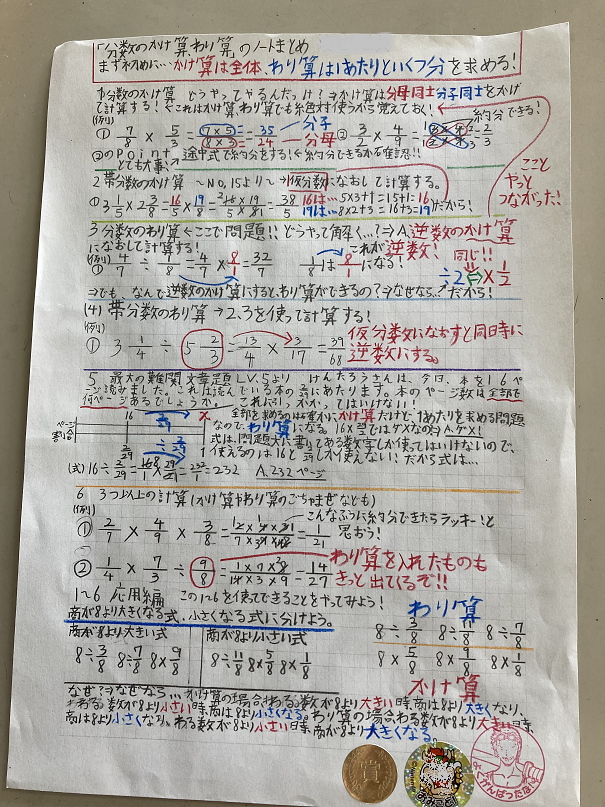 「分数のかけ算、わり算」のノートまとめ
まず初めに…かけ算は全体、わり算は1あたりといくつ分を求める!
1分数のかけ算 どうやってやるんだっけ?⇒かけ算は分母同士分子同士をかけ
て計算する!←これはかけ算、わり算でも絶対使うから覚えておく!
(例1) 約分できる!
① 7/8 × 5/3 = (7×5)/(8×3) = 35/24 分子 分母 ② 3/2 × 4/9 = = 2/3
②のPoint 途中式で約分をする!←約分できるかを確認!!
とても大事、
こことやっとつながった!
2 帯分数のかけ算 ~NO,15より~→仮分数になおして計算する。
① 3 1/5 × 2 3/8 = 16/5 × 19/8 = = 38/5 16は… 5×3+1=15+1=16 19は… 8×2+3=16+3=19 だから!
3 分数のわり算 ⇐ここで問題!! どうやって解く…?⇒A,逆数のかけ算
になおして計算する!
(例1) これが逆数! 同じ!!
① 4/7 ÷ 1/8 = 4/7 × 8/1 = 32/7 1/8は8/1になる! ÷2⇔×1/2
⇒でも、なんで逆数のかけ算にすると、わり算ができるの?⇒なぜなら…だから!
(4) 帯分数のわり算 → 2.3を使って計算する!
(例1)
① 3 1/4 ÷ 5 2/3 = 13/4 × 3/17 = 39/68 仮分数になおすと同時に
逆数にする。
5 最大の難関 文章題LV.5より けんたろうさんは、今日、本を16ペ
ージ読みました。これは読んでいる本の2/29にあたります。本のページ数は全部で
何ページあるでしょうか。
全部を求めるのは確かに、かけ算だけど、1あたりを求める問題
なので、わり算になる。
16 2/29 x
ページ
割合
÷ 2/29
式は、問題文に書いてある数字しか使ってはいけないので、
使えるのは16と2/29しか使えない!だから式は…
(式) 16÷2/29= =232/1=232 A.232ページ
6 3つ以上の計算(かけ算やわり算のごちゃまぜなども)
(例1) こんなふうに約分できたらラッキー!と
思おう!
① 2/7 × 4/9 × 3/8 = = 1/21
② 1/4 × 7/3 ÷ 9/8 = = 14/27 わり算を入れたものも
きっと出てくるぞ!!
1~6 応用編 この1~6を使ってできることをやってみよう!
商が8より大きくなる式、小さくなる式に分けよう。
わり算
8÷3/8 8÷11/8 8÷7/8
8×5/8 8×9/8 8×1/8
かけ算
商が8より大きい式
8÷3/8 8÷7/8 8×9/8
商が8より小さい式
8÷11/8 8×5/8 8×1/8
なぜ?⇒なぜなら…かけ算の場合、わる数が8より大きい時、商は8より大きくなり、
わる数が8より小さい時、商は8より小さくなる。わり算の場合、わる数が8より大きい時、
商は8より小さくなり、わる数が8より小さい時、商が8より大きくなる。
賞